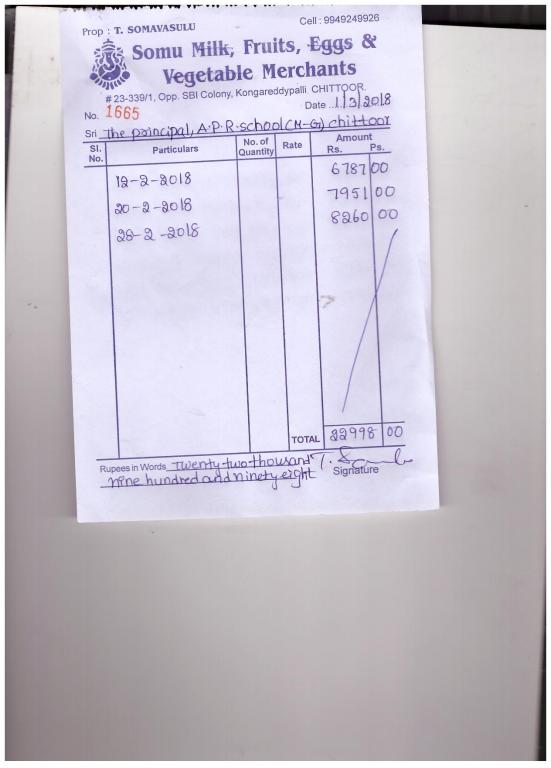 Prop : T. SOMAVASULU Cell : 9949249926
Somu Milk, Fruits, Eggs &
Vegetable Merchants
# 23-339/1, Opp. SBI Colony, Kongareddypalli CHITTOOR.
No. 1665 Date 1/3/2018
Sri The principal, A.P.R-school(M-G) chittoor
Sl. No. Particulars No. of Quantity Rate Amount Rs. Ps.
12-2-2018 6787 00
20-2-2018 7951 00
28-2-2018 8260 00
TOTAL 22998 00
Rupees in Words Twenty-two-thousand
nine hundred and ninety eight Signature